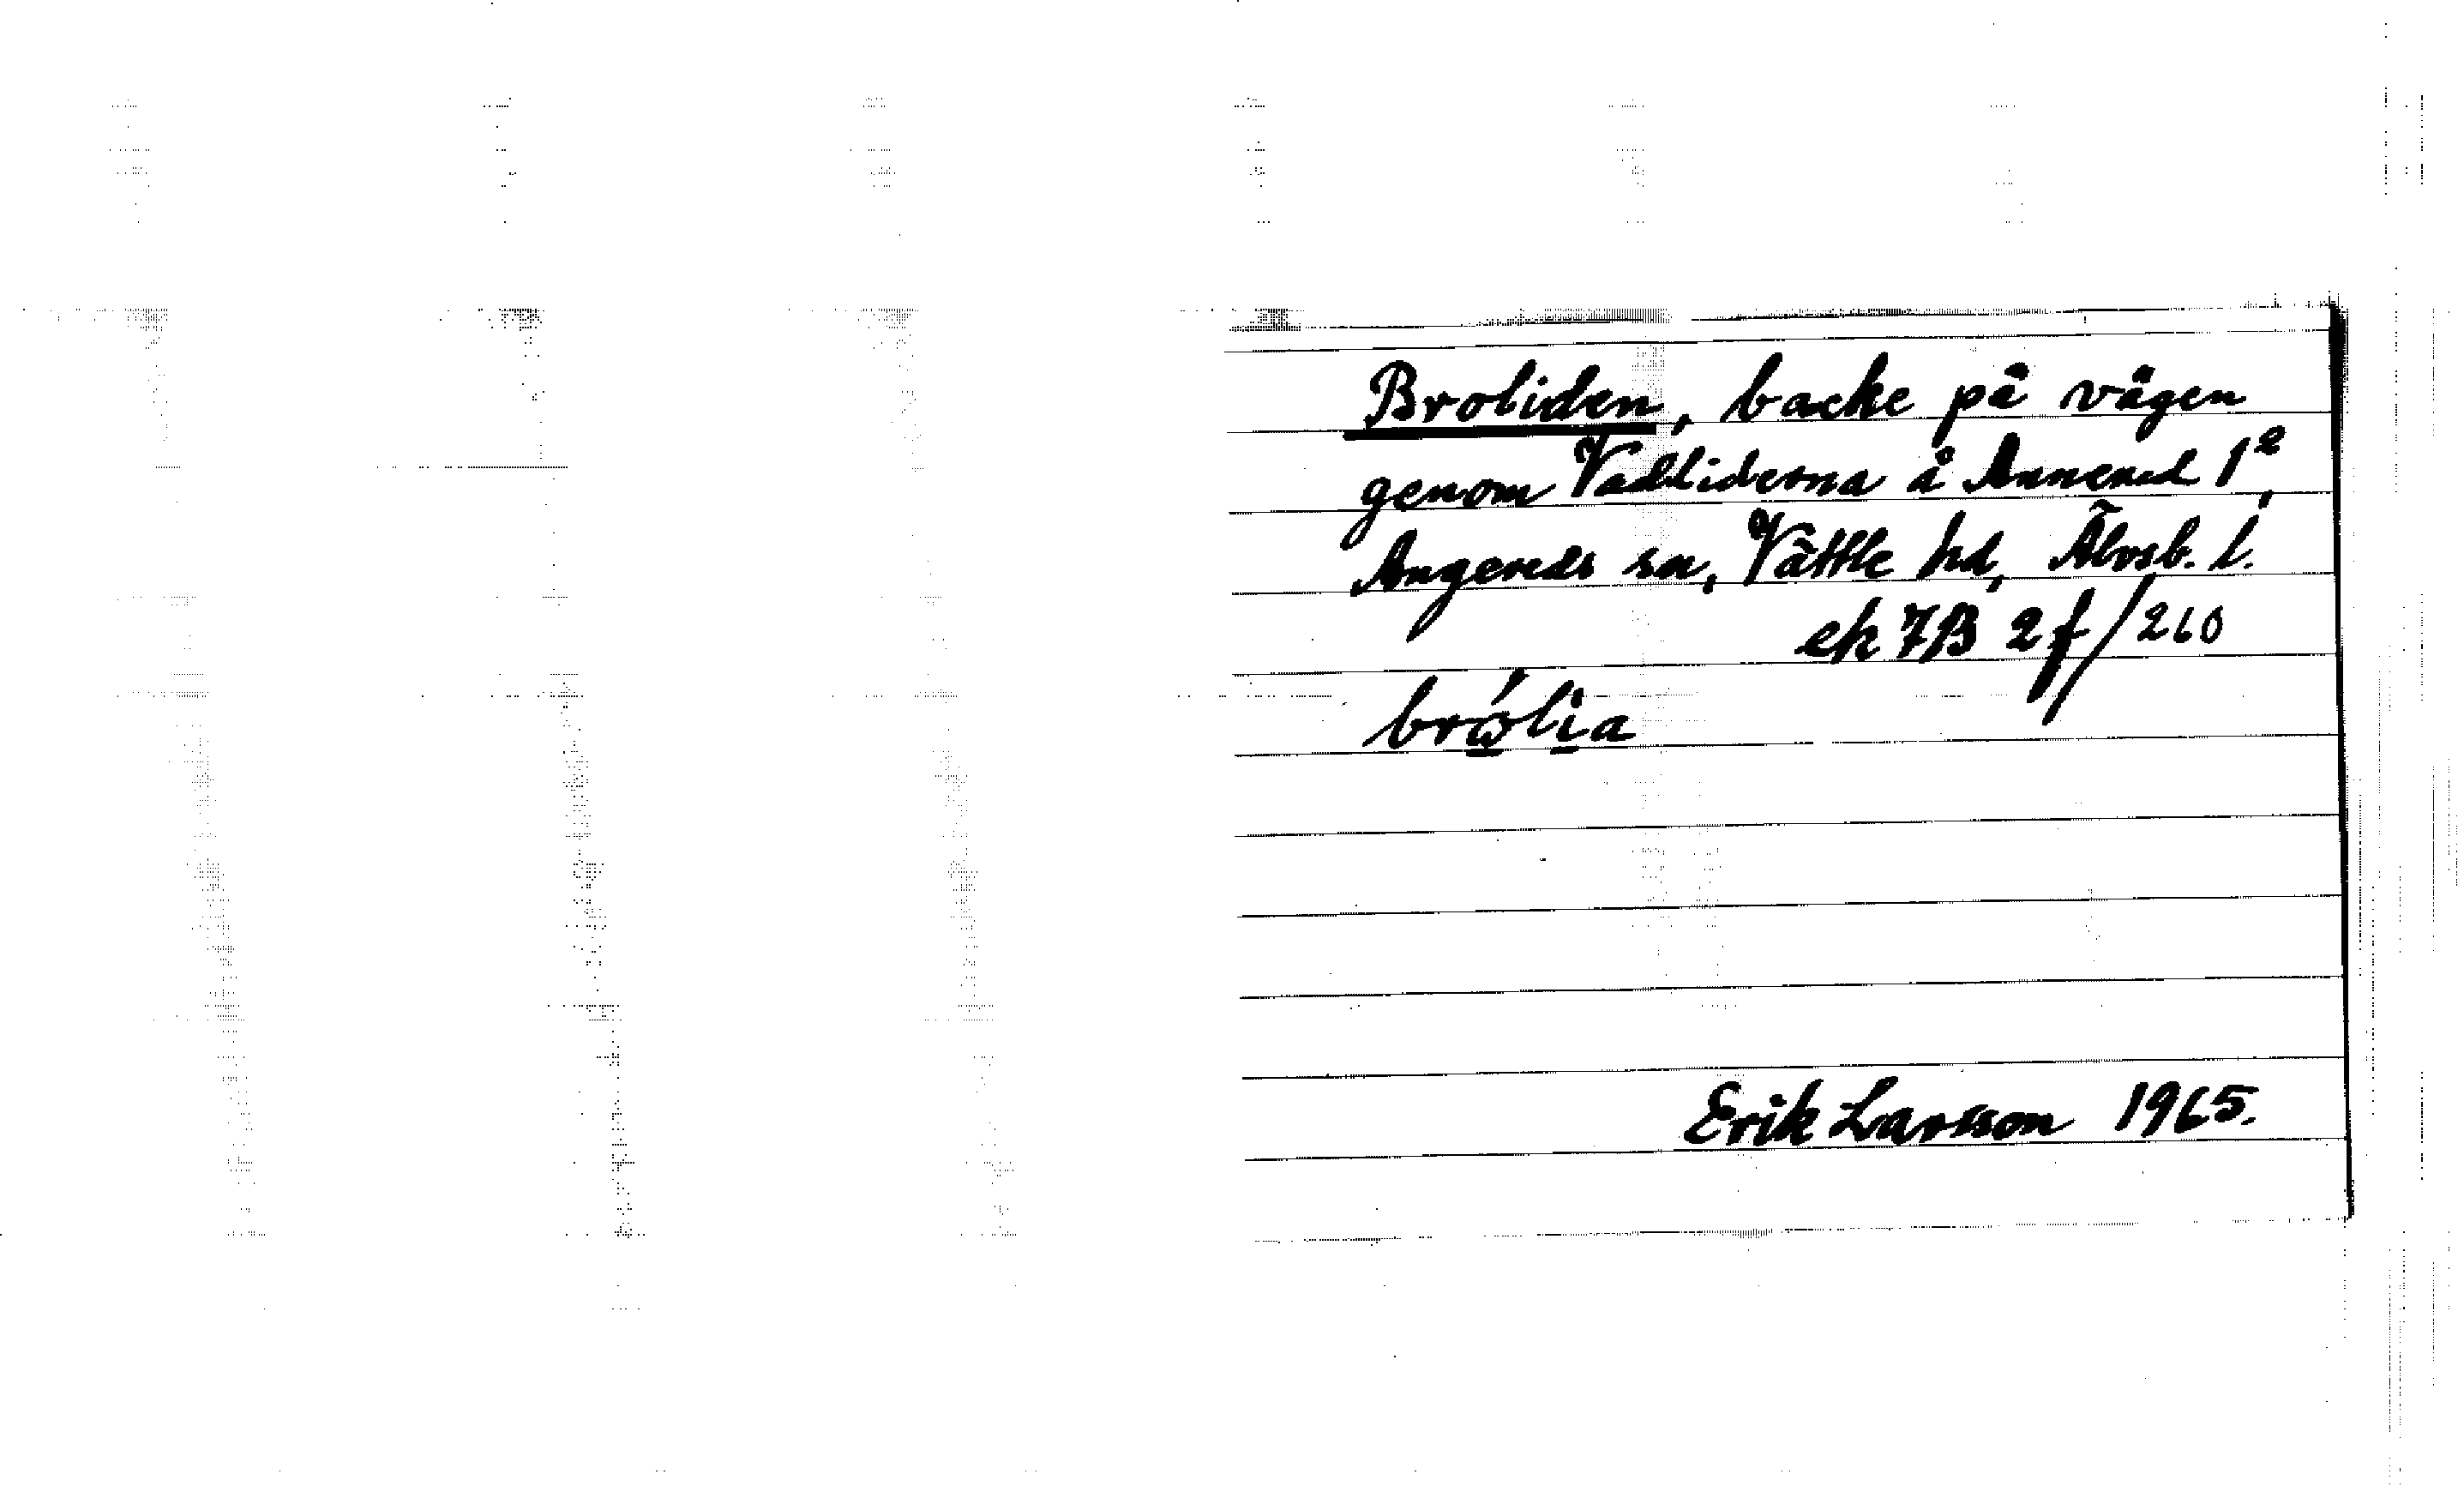 Broliden, backe på vägen
genom Vadliderna å Annered 1²,
Angereds sn, Vättle hd, Älvsb. l.
ek 7B 2f/260
brώlia
Erik Larsson 1965.